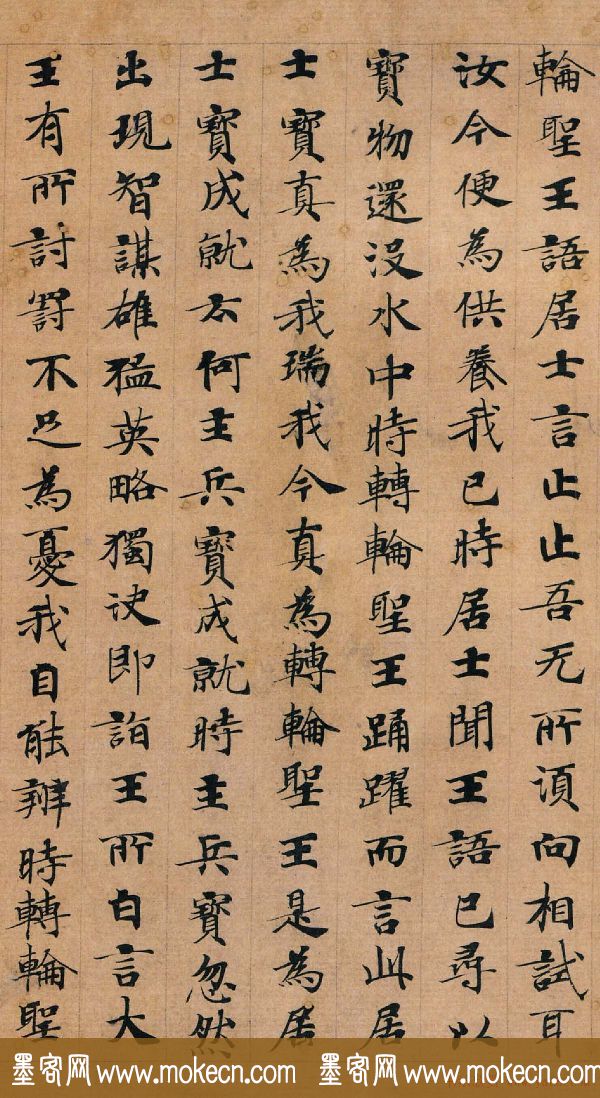 輪聖王語居士言止止吾无所須向相試耳
汝今便為供養我已時居士聞王語已尋以
寶物還没水中時轉輪聖王踊躍而言此居
士寶真為我瑞我今真為轉輪聖王是為居
士寶成就云何主兵寶成就時主兵寶忽然
出現智謀雄猛英略獨決即詣王所白言大
王有所討罰不足為憂我自能辦時轉輪聖
墨客网 www.mokecn.com 墨客网 www.mokecn.com